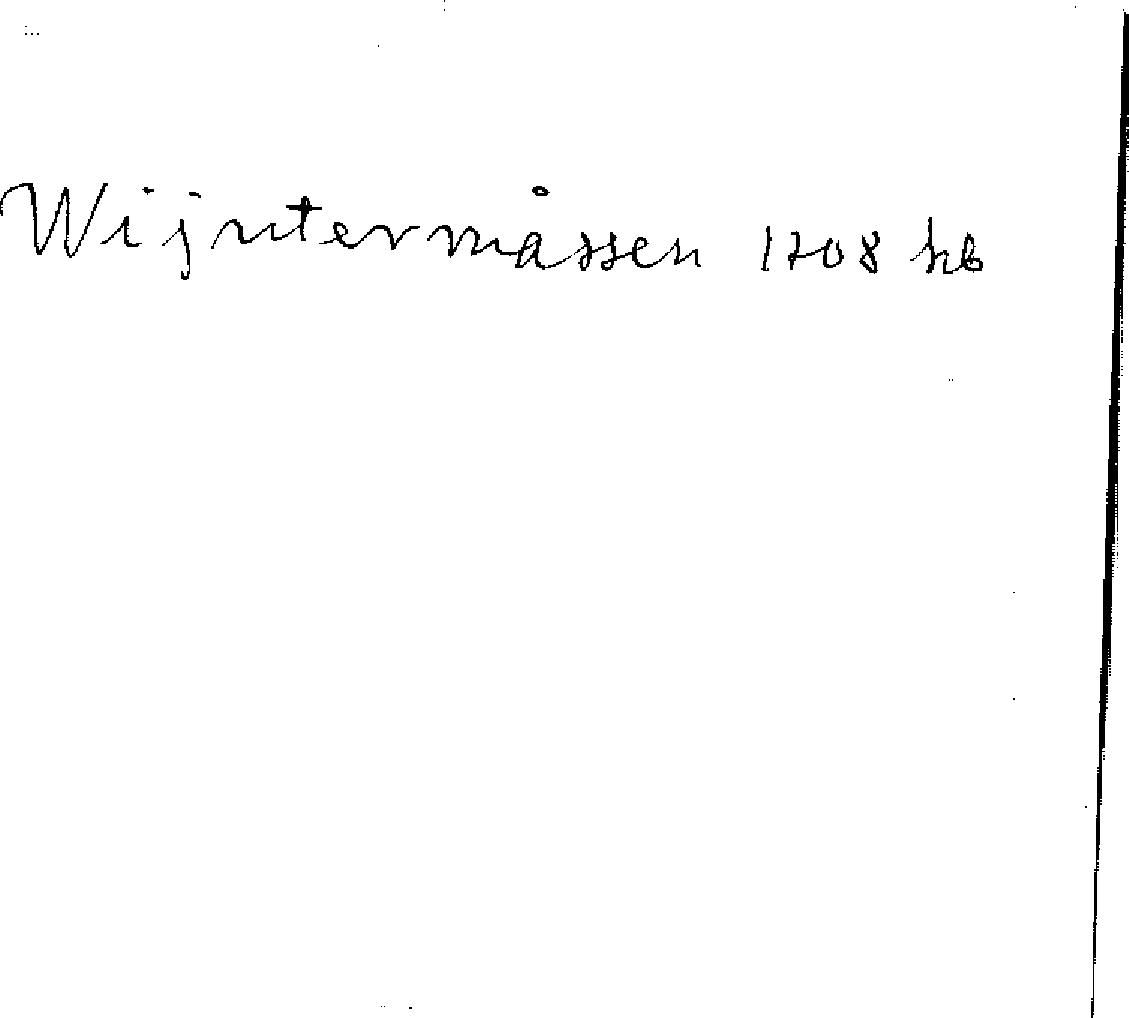 Wijntermåssen 1708 kb